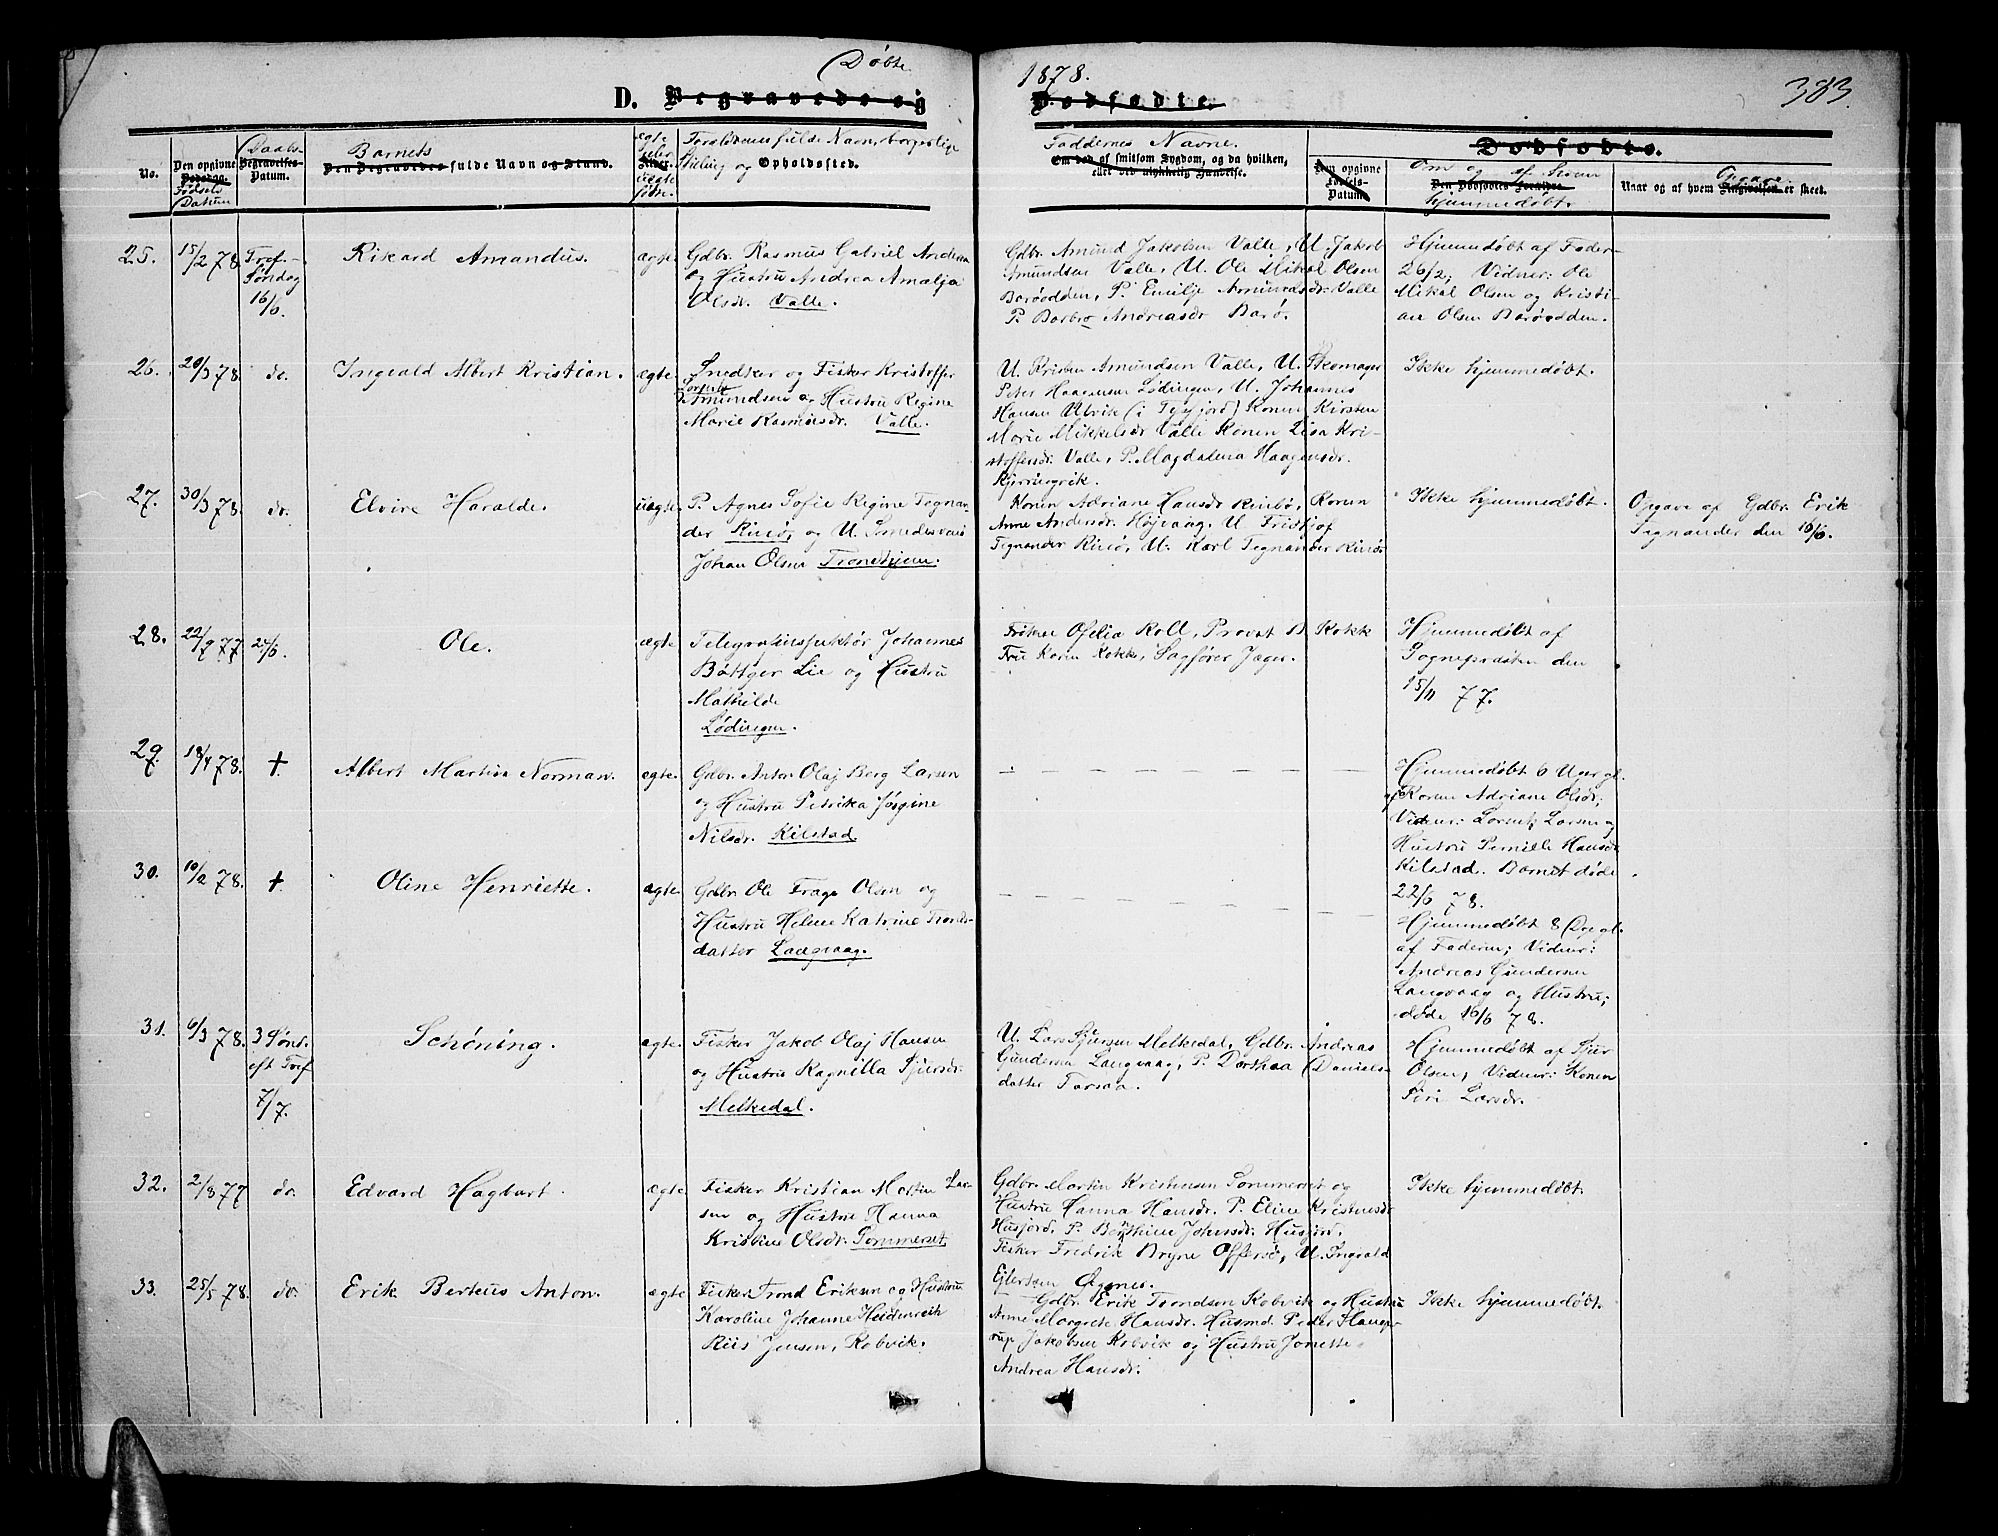 Døbte 1878.
383
D. Begravede og Dødfødte.
No.
Den opgivne Dødsdag. Fødsels Datum
Daabs- Begravelses- Datum.
Barnets
Den Begravedes fulde Navn og Stand.
ægte eller uægte født.
Forældrenes fulde Navn, borgerlige
Stilling og Opholdssted.
Faddernes Navne.
Om død af smitsom Sygdom, og da hvilken,
eller ved ulykkelig Hændelse.
Den opgivne Fødsels- Datum.
Dødfødte.
Om og af hvem
Den Dødfødtes Forældre
hjemmedøbt.
Naar og af hvem Opgave Angivelsen er skeet.
25.
15/2 78
Tref.-
Søndag
16/6.
Rikard Amandus.
ægte
Gdbr. Rasmus Gabriel Anderse
og Hustru Andrea Amalja
Olsdr. Valle.
Gdbr. Amund Jakobsen Valle, U. Jakob
Amundsen Valle, U. Ole Mikal Olsen
Barøodden, P. Emilje Amundsdr. Valle
P. Barbro Andreasdr Barø.
Hjemmedøbt af Fader-
26/2; Vidner: Ole
Mikal Olsen og Kristi-
ane Olsen Barøodden.
26.
20/3 78.
do.
Ingvald Albert Kristian.
ægte
Snedker og Fisker Kristoffer
Amundsen og Hustru Regine
Marie Rasmusdr. Valle.
U. Kristen Amundsen Valle, U. Skomager
Peter Haagensen Lødingen, U. Johannes
Hansen Ulvik (i Tysfjord) Konen Kirsten
Marie Mikkelsdr Valle Konen Lisa Kri-
stoffersdr. Valle, P. Magdalena Haagensdr.
Ikke hjemmedøbt.
27.
30/3 78.
do.
Elvire Haralde.
uægte
P. Agnes Sofie Regine Tegnan-
der Rinø, og U. Smedesvend
Johan Olsen Trondhjem.
Konen Adriane Hansdr Rinø, Konen
Anne Andersdr. Højvaag. U. Fridtjof
Tegnander Rinø, U. Karl Tegnander Rinø
Ikke hjemmedøbt.
Opgave af Gdbr. Erik
Tegnander den 16/6.
28.
22/9 77
24/6.
Ole.
ægte
Telegrafinspektør Johannes
Bøttger Lie og Hustru
Mathilde
Lødingen.
Frøken Ofelia Roll, Provst B Kokk
Fru Karen Kokk, Sagfører Jæger.
Hjemmedøbt af
Sognepræsten den
15/11 77.
29.
18/4 78.
+.
Albert Martin Norman.
ægte.
Gdbr. Anton Olaj Berg Larsen
og Hustru Petrika Jørgine
Nilsdr. Kilstad
Hjemmedøbt 6 Uger gl.
af Konen Adriane Olsdr;
Vidner: Lorents Larsen og
Hustru Pernille Hansdr
Kilstad. Barnet døde
22/6 78.
30.
10/2 78.
+.
Oline Henriette.
ægte.
Gdbr. Ole Trage Olsen og
Hustru Helene Katrine Tronds-
datter Langvaag.
Hjemmedøbt 8 Dge gl.
af Faderen; Vidner:
Andreas Gundersen
Langvaag og Hustru;
døde 16/6 78.
31.
6/3 78.
3 Sønd.
eft Tref
7/7.
Schøning.
ægte.
Fisker Jakob Olaj Hansen
og Hustru Ragnilla Sjursdr.
Melkedal.
U. Lars Sjursen Melkedal, Gdbr. Andreas
Gundersen Langvaag, P. Dorthea Daniels-
datter Tarsaa.
Hjemmedøbt af Sjur
Olsen, Vidner: Konen
Siri Larsdr.
32.
2/8 77
do.
Edvard Hagbart.
ægte
Fisker Kristian Martin Lar-
sen og Hustru Hanna
Kristine Olsdr. Sommerset.
Gdbr. Martin Kristensen Sommerset og
Hustru Hanna Hansdr. P. Eline Kristensdr
Husjord, P. Berthine Johansdr. Husjord.
Fisker Fredrik Bryne Offersø, U. Ingvald
Ejlertsen Øgsnes.
Ikke hjemmedøbt
33.
25/5 78.
do.
Erik Berteus Anton.
ægte
Fisker Trond Eriksen og Hustru
Karoline Johanne Heidenreich
Riis Jensen, Kobvik.
Gdbr. Erik Trondsen Kobvik og Hustru
Anne Margrete Hansdr. Husmd. Peder Haage-
rup Jakobsen Kobvik og Hustru Jonette
Andrea Hansdr.
Ikke hjemmedøbt